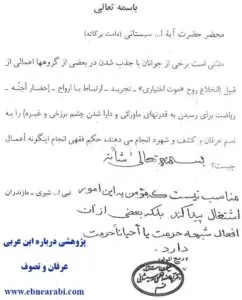 باسمه تعالی
محضر حضرت آیة ا... سیستانی (دامت برکاته)
مدتی است برخی از جوانان با جذب شدن در بعضی از گروهها اعمالی از
قبیل (انخلاع روح «موت اختیاری» - تجرید - ارتباط با ارواح - احضار أجنّه -
ریاضت برای رسیدن به قدرتهای ماورائی و دارا شدن چشم برزخی و غیره) را به
اسم عرفان و کشف و شهود انجام می دهند، حکم فقهی انجام اینگونه أعمال
چیست؟
بسمه تعالی شأنه
نبی ا... شیری - مازندران
مناسب نیست که مؤمن به این امور
اشتغال پیدا کند بلکه بعضی از آن
افعال شبهه حرمت یا أحیاناً حرمت
دارد.
پژوهشی درباره ابن عربی
عرفان و تصوف
www.ebnearabi.com